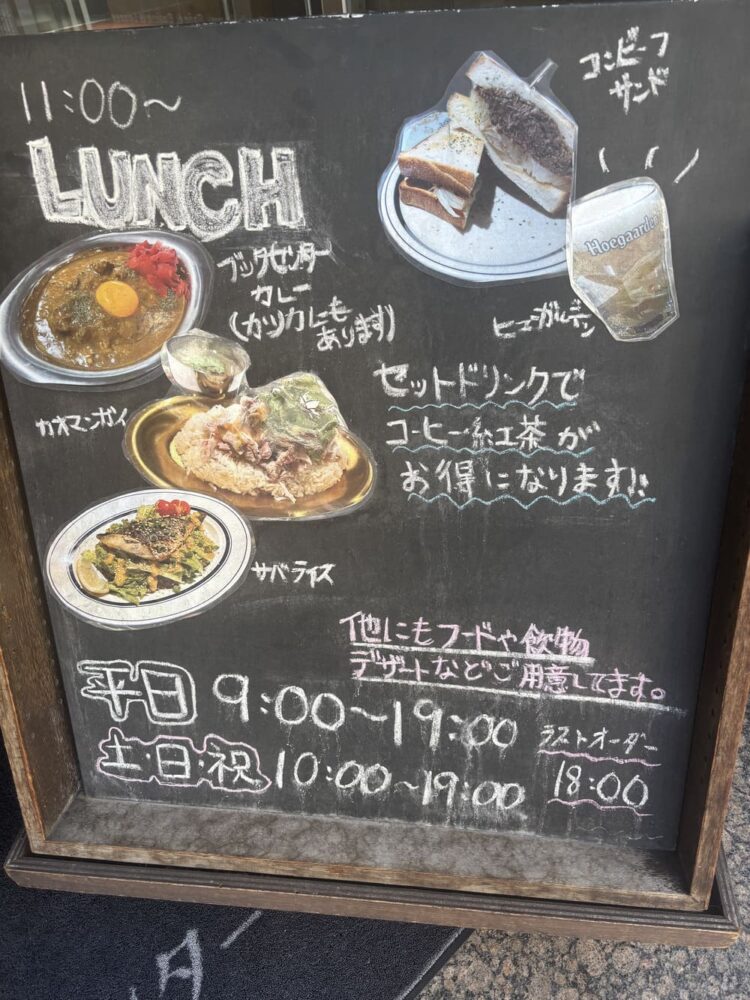 11:00~
LUNCH
コンビーフ
サンド
Hoegaarden
ヒューガルデン
ブックセンター
カレー
(カツカレーにも
あります)
カオマンガイ
サバライス
セットドリンクで
コーヒー・紅茶が
お得になります!!
他にもフードや飲物
デザートなどご用意してます。
平日 9:00~19:00
土・日・祝 10:00~19:00
ラストオーダー
18:00